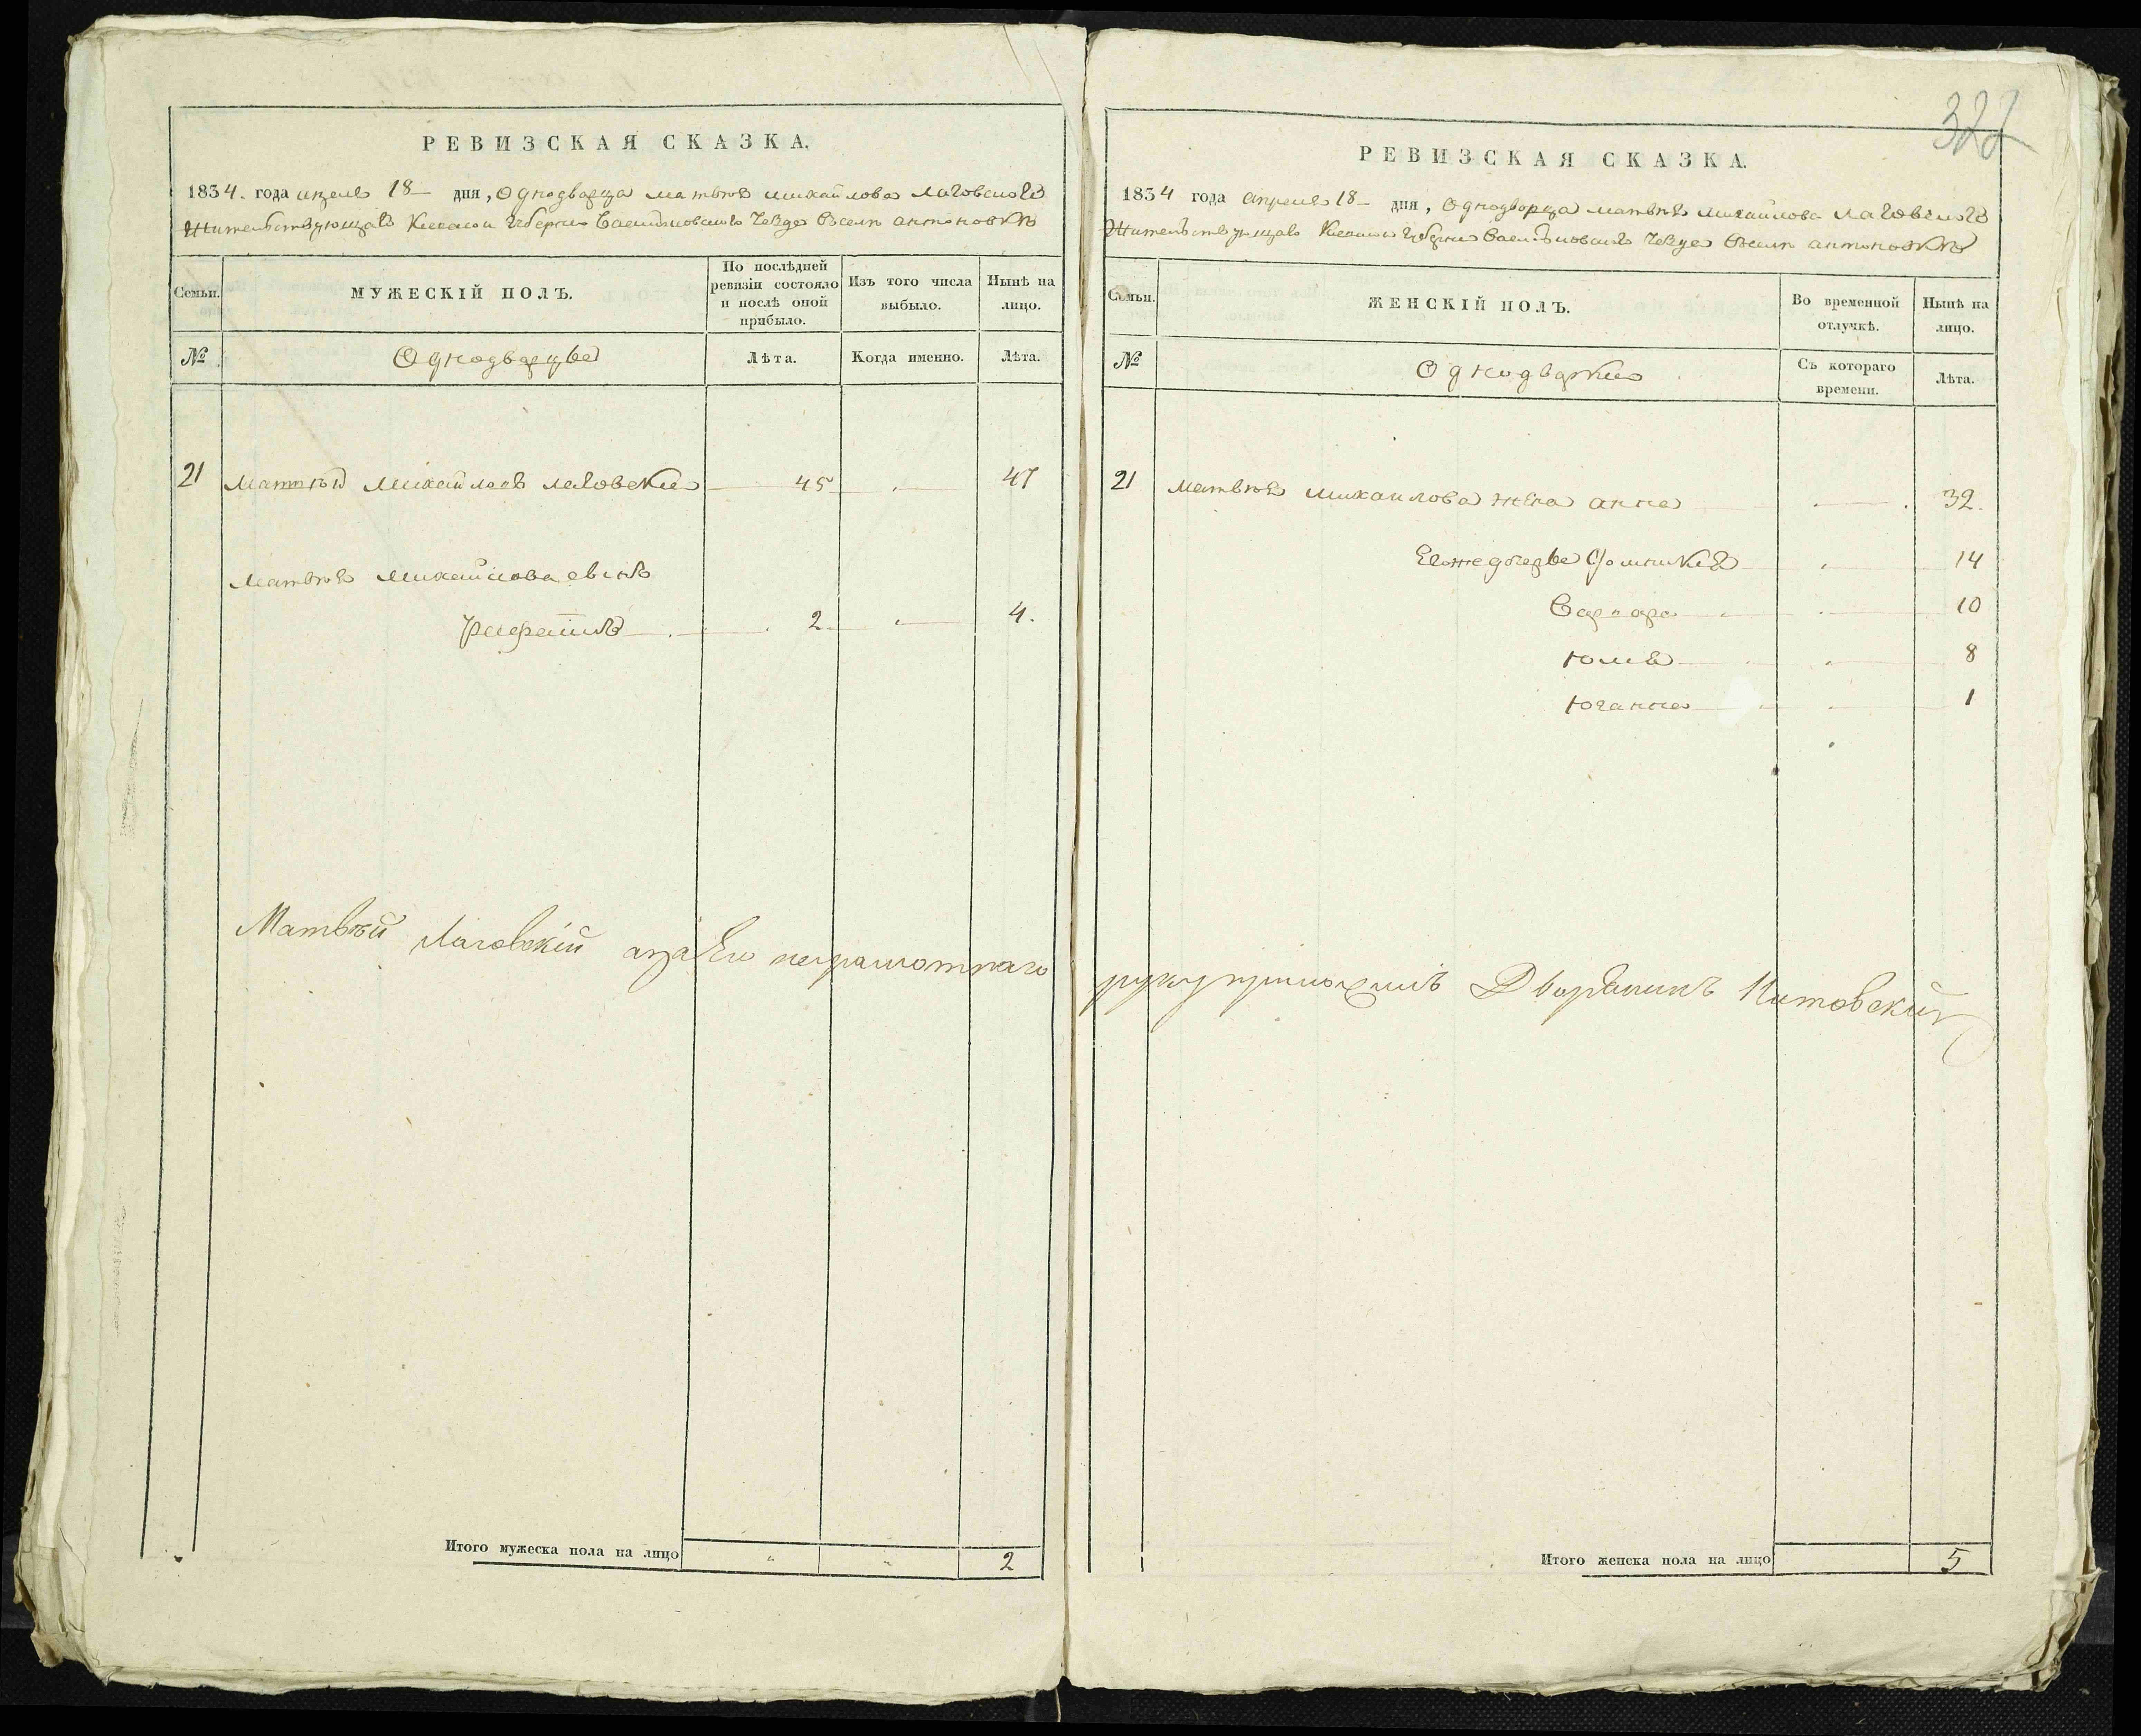 РЕВИЗСКАЯ СКАЗКА.
1834. года апреля 18 дня, Однодворца матвея михайлова Лаговскаго
Жительствующаго Киевской Губернии Васильковскаго Уезда Вселе антоновке
Семьи.
МУЖЕСКІЙ ПОЛЪ.
По послѣдней ревизіи состояло и послѣ оной прибыло.
Изъ того числа выбыло.
Нынѣ на лицо.
№
Однодворцы
Лѣта.
Когда именно.
Лѣта.
21 Матвей Михайловъ Лаговский 45 47
Матвея Михайлова сынъ
2 4.
Матвѣй Лаговскій аза Его неграмотнаго
Итого мужеска пола на лицо 2
322
РЕВИЗСКАЯ СКАЗКА.
1834 года апреля 18 дня, Однодворца матвея михайлова Лаговскаго
Жительствующаго Киевской Губернии Васильковскаго Уезда Вселе антоновке
Семьи.
ЖЕНСКІЙ ПОЛЪ.
Во временной отлучкѣ.
Нынѣ на лицо.
№
Однодворки
Съ котораго времени.
Лѣта.
21 Матвея михайлова жена анна 32.
14
Варвара 10
Юлия 8
Юганна 1
руку приложилъ Дворянинъ Китовский
Итого женска пола на лицо 5